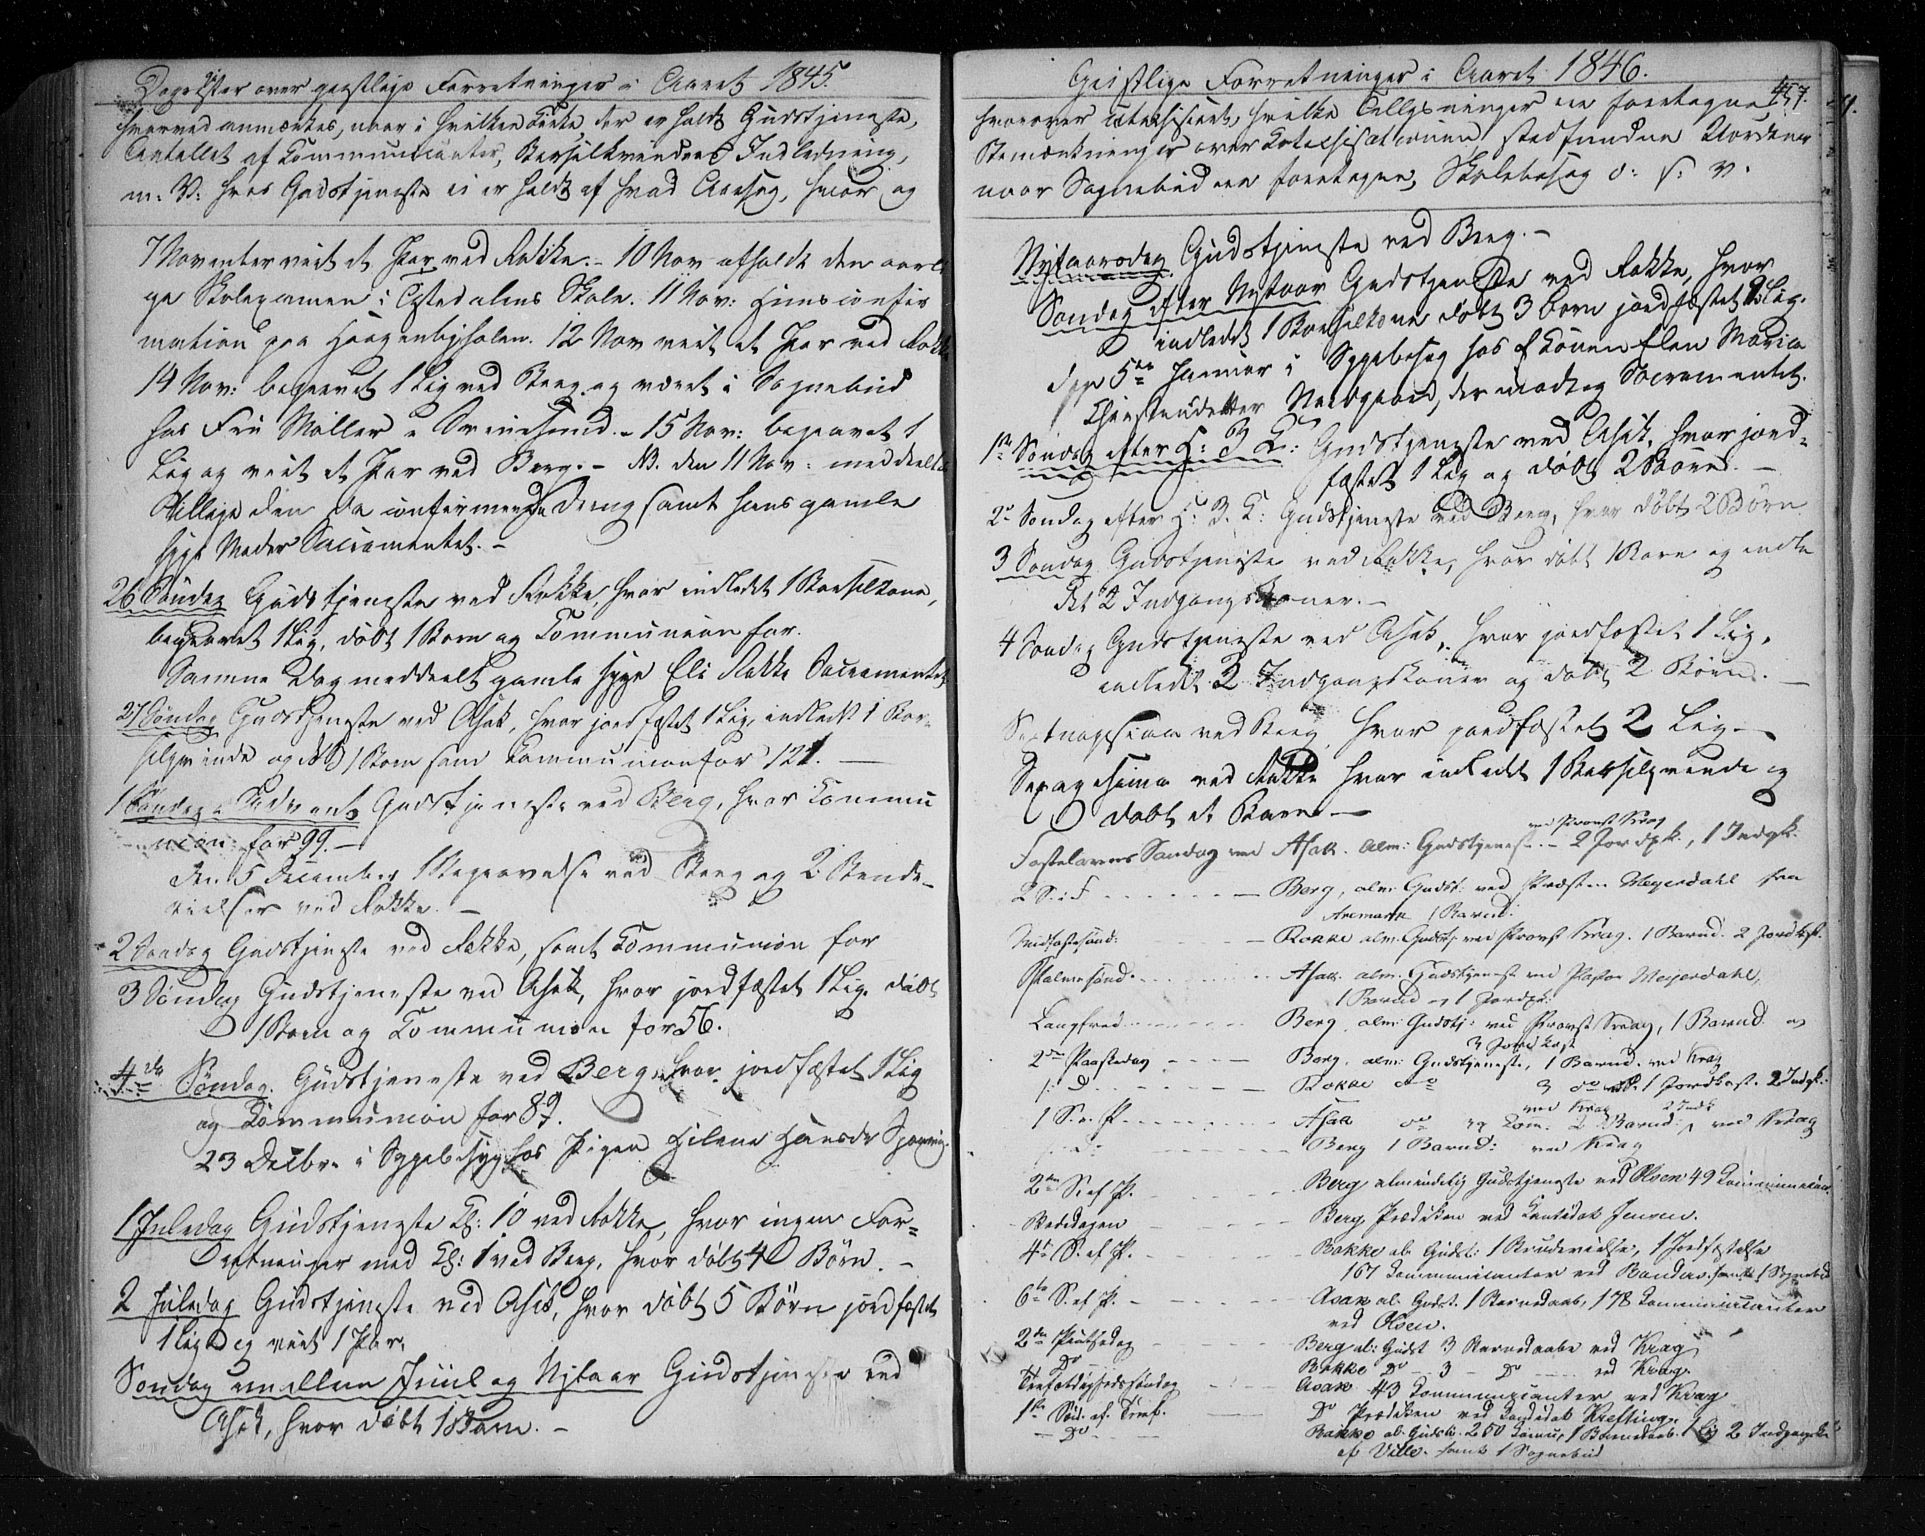 Dagregister over geistlige Forretninger i Aaret 1845.
hvorved anmærkes, naar i hvilken Kirke der er holdt Gudstjeneste,
Antallet af Communicanter, Barselkvinders Indledning,
m. V: hvis Gudstjeneste ei er holdt af hvad Aarsag, hvor og
7 November viet et Par ved Rokke. - 10 Nov afholdt den aarli
ge Skoleexamen i Tistedalens Skole. 11 Nov: Hiemsconfir
mation paa Haagenbyholen. 12 Nov viet et Par ved Rokke
14 Nov: begravet 1 Lig ved Berg og været i Sognebud
hos Fru Møller i Svinesund. - 15 Nov: begravet 1
Lig og viet et Par ved Berg. - NB. den 11 Nov: meddeelte
tillige den da confirmerede Dreng samt hans gamle
syge Moder Sacramentet. -
26 Søndag Gudstjeneste ved Rokke, hvor indledet 1 Barselkone,
begravet 1 Lig, døbt 1 Barn og Communion for.
Samme Dag meddeelt gamle syge Eli Rokke Sacramentet
27 Søndag Gudstjeneste ved Asak, hvor jordfæstet 1 Lig, indledt 1 Bar-
selqvinde og døbt 1 Barn samt Communion for 121. -
1 Søndag i Advent Gudstjeneste ved Berg, hvor Commu
nion for 99. -
Den 5 December 1 Begravelse ved Berg og 2 Brude-
vielser ved Rokke. -
2 Søndag Gudstjeneste ved Rokke, samt Communion for
3 Søndag Gudstjeneste ved Asak, hvor jordfæstet 1 Lig, døbt
1 Barn og Communion for 56.
4de Søndag. Gudstjeneste ved Berg, hvor jordfæstet 1 Lig
og Communion for 89.
23 Decbr. i Sygebesøg hos Pigen Helene Hansdr
1 Juledag Gudstjeneste Kl: 10 ved Rokke, hvor ingen For-
retninger med Kl: 1 ved Berg, hvor døbt 4 Børn. -
2 Juledag Gudstjeneste ved Asak, hvor døbt 5 Børn jordfæstet
1 Lig og viet 1 Par.
Søndag imellem Juul og Nytaar Gudstjeneste ved
Asak, hvor døbt 1 Barn. -
Geistlige Forretninger i Aaret 1846.
457.
hvorover catechiseret, hvilke Tillysninger ere foretagne
Bemærkninger over Katechisationen, stedfundne Uordener
naar Sognebud ere foretagne, Skolebesøg o: s: v.
Nytaarsdag Gudstjeneste ved Berg. -
Søndag efter Nytaar Gudstjeneste ved Rokke, hvor
indledt 1 Barselkone døbt 3 Børn jordfæstet 2 Lig.
den 5te Januar i Sygebesøg hos Konen Elen Maria
Christensdatter der modtog Sacramentet.
1ste Søndag efter H: 3 K: Gudstjeneste ved Asak, hvor jord-
fæstet 1 Lig og døbt 2 Børn. -
2den Søndag efter H: 3. K: Gudstjeneste ved Berg, hvor døbt 2 Børn
3 Søndag Gudstjeneste ved Rokke, hvor døbt 1 Barn og indle
det 2 Indgangskoner. -
4 Søndag Gudstjeneste ved Asak, hvor jordfæstet 1 Lig,
indledt 2 Indgangskoner og døbt 2 Børn. -
Septuagesima ved Berg hvor jordfæstet 2 Lig -
Sexagesima ved Rokke hvor indledt 1 Barselqvinde og
døbt et Barn -
ved Provst Krag
Fastelavns Søndag ved Asak. alm: Gudstjeneste. - 2 Jordfk., 1 Indgk.
2 S. i F. - Berg, alm: Gudst: ved Præsten Meyerdahl fra
Aremark 1 Barned:
Midfastesønd: - Rokke alm. Gudstj. ved Provst Krag. 1 Barnd. 2 Jordkst.
Palmesønd. Asak alm. Gudstjeneste ved Pastor Meyerdahl,
1 Barnd og 1 Jordfk:
Langfred. Berg, alm: Gudstj: ved Provst Krag, 1 Barnd. og
3 Jordkast
2den Paaskedag Berg. alm: Gudstjeneste, 1 Barnd. ved Krag
do Rokke do 3 do 1 Jordkast. 2 Indgk:
ved Krag 2 Indk
1 S. e. P. Asak do og Kom. 2 Barnd: ved Krag
do Berg 1 Barnd: ved Krag
2den S. ef P. Berg almindelig Gudstjeneste ved Olsen 49 Kommunikan.
Bededagen Berg Prædiken ved Kandidat Jensen.
4de S. ef P. Rokke al. Gudst: 1 Brudevielse, 1 Jordfæstelse
167 Kommunicanter ved samt 1 Sognebud
6te S. ef P. - Asak al. Gudst. 1 Barnedaab, 178 Kommunicanter
ved Olsen.
2den Pintsedag Berg al: Gudst 3 Barnedaabe ved Krag
Do Rokke Do - 3 - Do ved Krag.
Trefoldighedssøndag Asak 43 Kommunicanter ved Krag
1ste Sønd. ef. Tref. Do Prædiken ved Kandidat Kiefting.
- Do - Rokke al. Gudst. 250 Komm, 1 Barnedaab. 1 Lig 2 Indgangsk
af Wille. samt 1 Sognebud